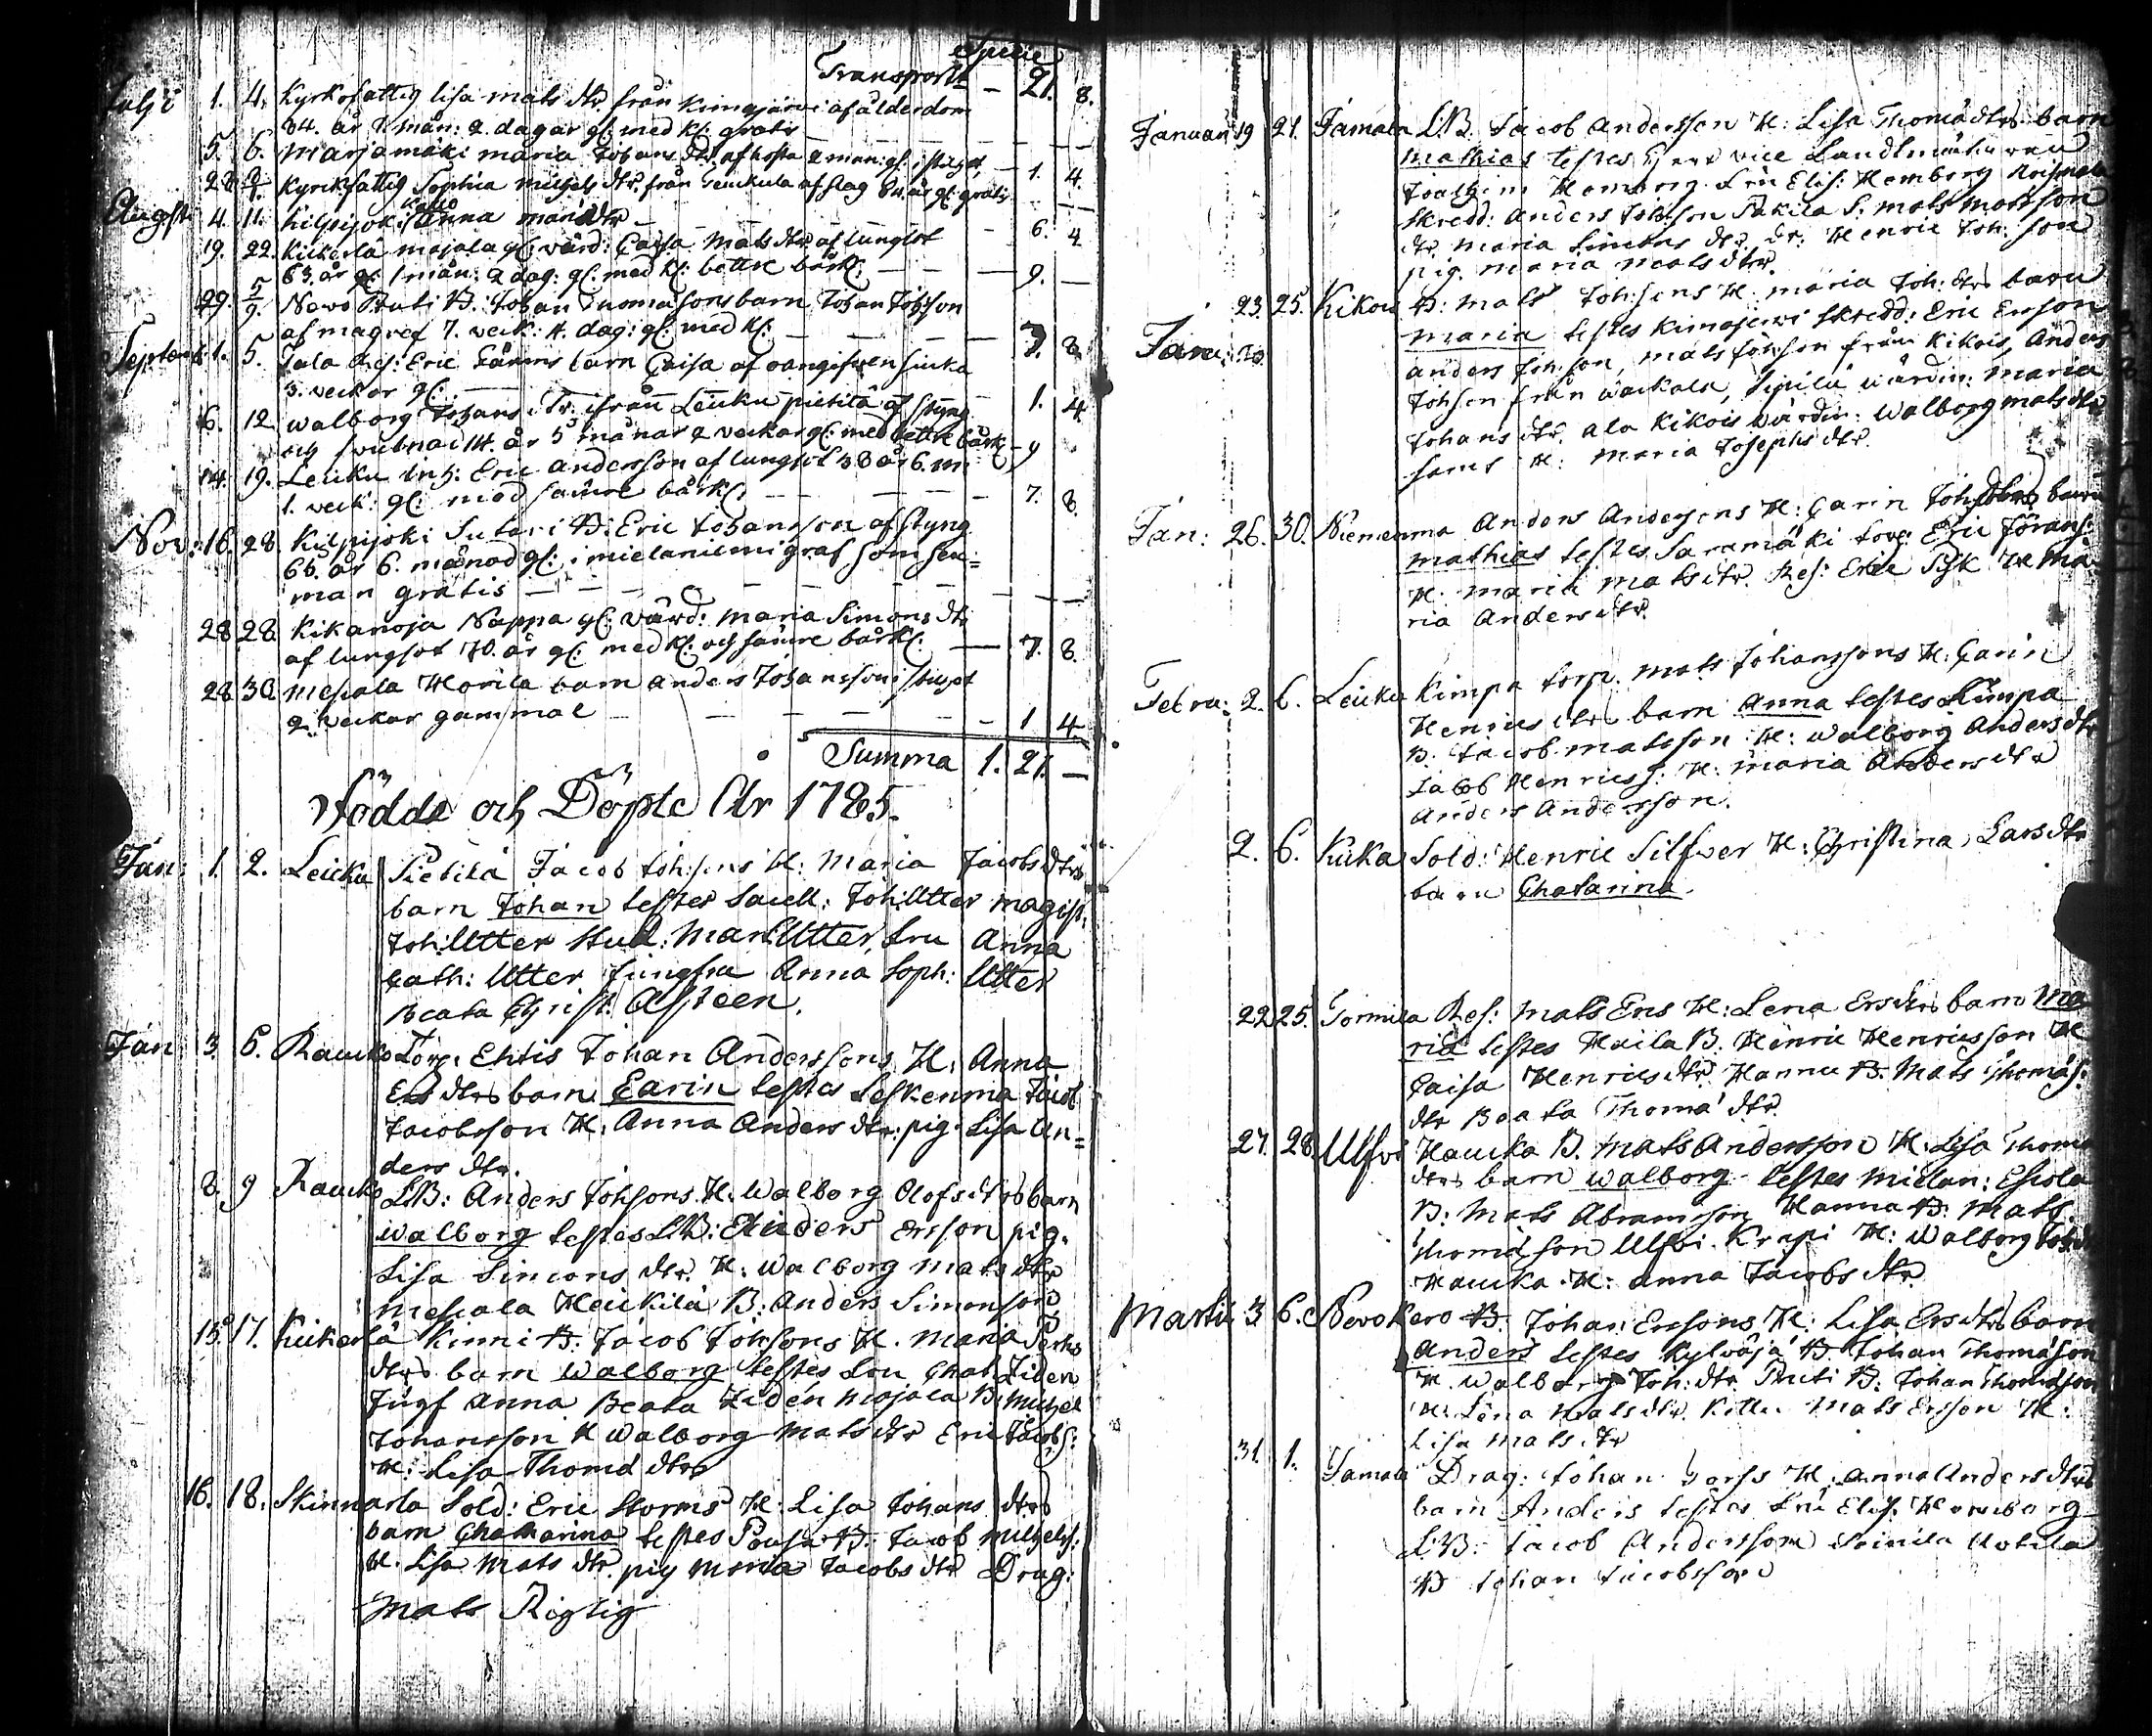 Specie
Transport – 21. 8.
Julii 1. 4. Kyrkofattig Lisa Mats dtr från Kimojärvi af ålderdom
84. år 2. mån: 2. dagar gl: med kl: gratis
5. 6. Marjamäki Maria Johans dtr af hosta 2 mån: gl. – 1. 4.
28. Kyrkofattig Sophia Michels dtr från af slag år gl: gratis
Augsti 4. 11. Kilpijoki Anna Mariæ dtr – 6. 4
19. 22. Kiikerlä Mojala gl: värd: Cajsa Mats dtr af lungsot
63. år gl: 1 mån: 2 dag: gl: med kl: bettre bårkl: – 9. –
29. 5/9. Nowo Pruti B: Johan Thomæsons barn Johan Johsson
af magref 7. veck: 4. dag: gl: med kl: – 7. 8
Septemb: 1. 5. Jala Res: Eric barn Caisa af oangifwen siuka
3. veckor gl: – 1. 4
6. 12. Walborg Johans dtr ifrån Leuku Pietilä af styng
och 14. år 5 månar 2 veckor gl: med bettre bårk – 9
14. 19. Leuku Inh: Eric Andersson af lungsot 38 år 6. m:
1. veck: gl: med sämre bårkl: – 7. 8.
Nov: 16. 28. Kilpijoki Sutari B: Eric Johansson af styng
66. år 6. månad gl: i Mielanilmi graf som sen=
man gratis –
28 28. Kikanoja Nappa gl: värd: Maria Simons dtr
af lungsot 70. år gl: med kl: och sämre bårkl: – 7. 8.
28 30. Mesiala Horila barn Anders Johansson
2. veckor gammal – 1 4.
Summa 1. 21. –
Födde och Döpte Åhr 1785.
Jan: 1. 2. Leuku Pietilä Jacob Johsons H: Maria Jacobs dtrs
barn Johan testes Sacell: Joh: Utter magist:
Joh: Utter Stud: Mart: Utter, Fru Anna
Cath: Utter Jungfru Anna Soph: Utter
Beata Christ: Alsteen.
Jan 3. 6. Rauko Torp: Ehtis Johan Anderssons H: Anna
Ers dtrs barn Carin testes Leskenma Jacob
Jacobsson H: Anna Anders dtr: pig: Lisa An=
ders dtr.
8. 9 Rauko LB: Anders Johsons H: Walborg Olofs dtrs barn
Walborg testes LB: Anders Ersson pig.
Lisa Simons dtr. H: Walborg Mats dtr
Mesiala Heikilä B: Anders Simonson
15. 17. Kiikerlä Kinni B. Jacob Johsons H. Maria
dtrs barn Walborg testes Fru Chat: Liden
Jugf Anna Beata Lidén Mojala B: Michel
Johansson H Walborg Mats dtr Eric Jacobs:
H: Lisa Thomæ dtr
16. 18. Skinnarla Sold: Eric Storms H: Lisa Johans dtrs
barn Chatharina testes Pousa B. Jacob Michels:
H. Lisa Mats dtr. pig Maria Jacobs dtr Drag:
Mats Rigtig
Januari 19 21. Jamala LB. Jacob Andersson H: Lisa Thomæ dtrs barn
Mathias testes Herr vice Landtmätaren
Joachim Homborg Fru Elis: Homborg
Skredd: Anders Johsson Pakila S. Mats Matsson
dtr Maria Simons dtr, dr: Henric Joh: son
pig. Maria Mats dtr.
23. 25. Kikois B: Mats Joh:sons H: Maria Joh: dtrs barn
Maria testes Kimojerwi Skredd: Eric Ersson
Janu: 20 Anders Joh:son, Mats Johson från Kikois, Anders
Johson från Wackala, Sipilä wärdin: Maria
Johans dtr, Ala Kikois wärdin: Walborg Mats dtr
H: Maria Josephs dtr.
Jan: 26. 30. Niemenma Anders Andersons H: Carin Johs dtrs barn
Mathias testes Saramäki torp: Eric Jörans:
H: Maria Mats dtr. Res: Eric Pisk H: Ma
ria Anders dtr.
Febru: 2. 6. Leuku Kimpa torp. Mats Johanssons H: Carin
Henrics dtrs barn Anna testes Kimpa
B. Jacob Matsson H: Walborg Anders dtr
Jacob Henrics: H: Maria Anders dtr
Anders Andersson.
2. 6. Kiika Sold: Henric Silfwer H: Christina Lars dtr
barn Chatarina.
22 25. Tormila Res: Mats Ers H: Lena Ers dtrs barn Ma
ria testes Heila B. Henric Henricsson H
Caisa Henrics dtr. Hannu B. Mats Thomæs:
dtr Beata Thomæ dtr.
27. 28. Ulfwi Hauka B. Mats Andersson H. Lisa Thomæ
dtrs barn Walborg testes Mielan: Eskola
B: Mats Abramsson Hannu B: Mats
Thomæson Ulfwi Krapi H: Walborg Johs dr
Hauka H: Anna Jacobs dtr
Martii 3 6. Nowo Kero B. Johan Erssons H: Lisa Ers dtrs barn
Anders testes Kylväjä B Johan Thomæson
H. Walborg Joh: dtr. Pruti B: Johan Thomæson
H: Lena Mats dtr. Mats Ersson H:
Lisa Mats dtr
31. 1. Jamala Drag: Johan H: Anna Anders dtrs
barn Anders testes Fru Elis: Homborg
LB: Jacob Andersson Sonila Uotila
B Johan Jacobsson